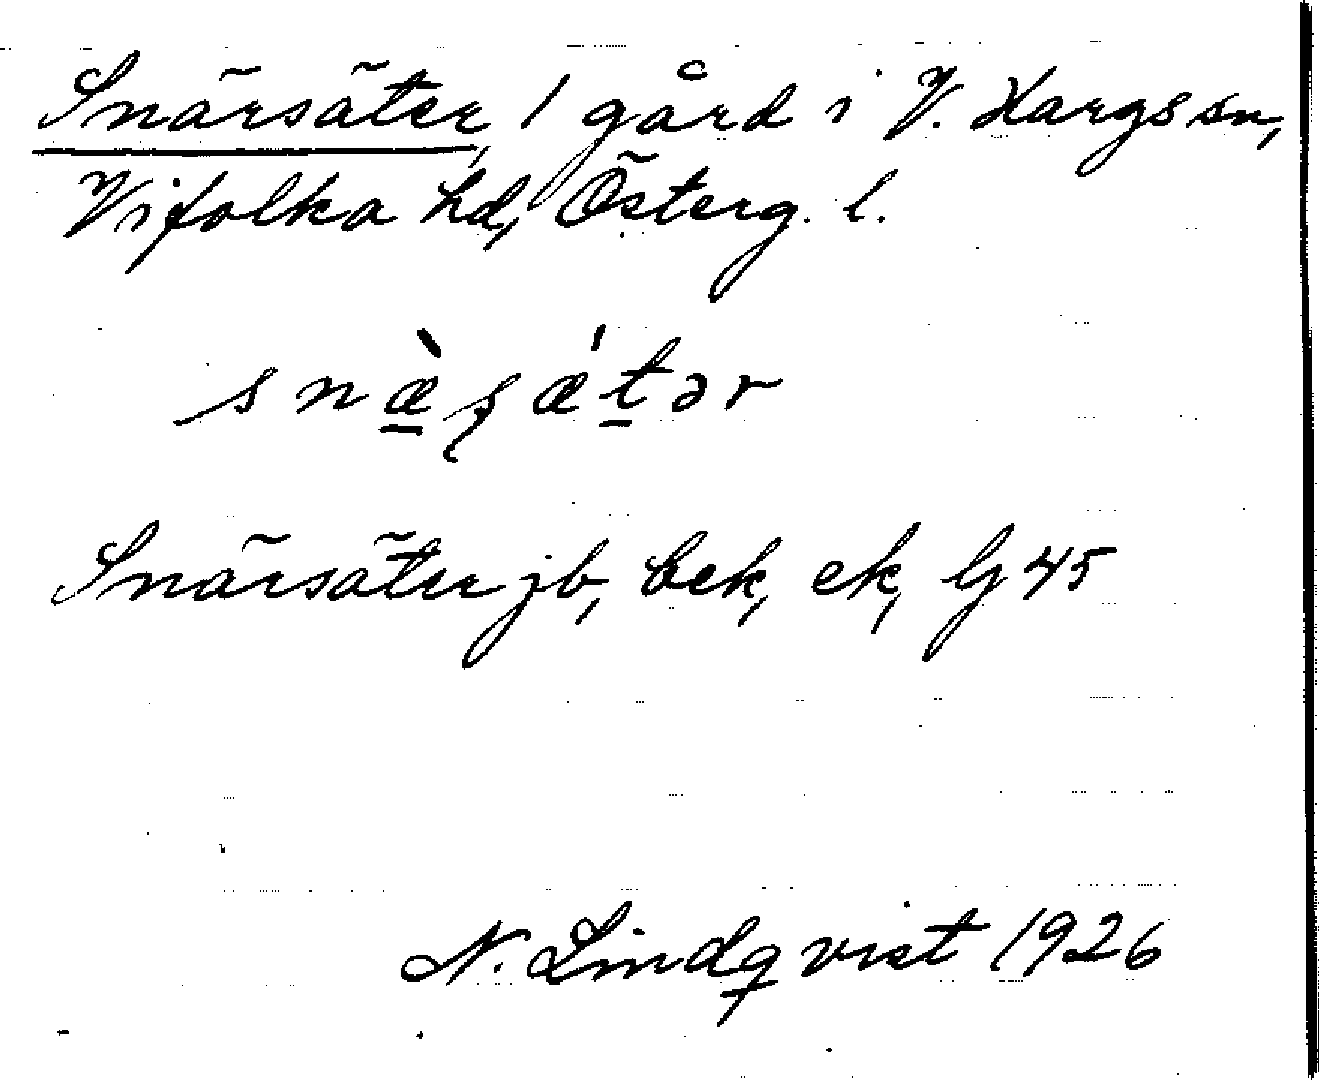 Snärsäter, 1 gård i V. Hargs sn,
Vifolka hd, Österg. l.
snæ̠̀ʂǽt̠ər
Snärsäter jb, bek, ek, G 45
N. Lindqvist 1926